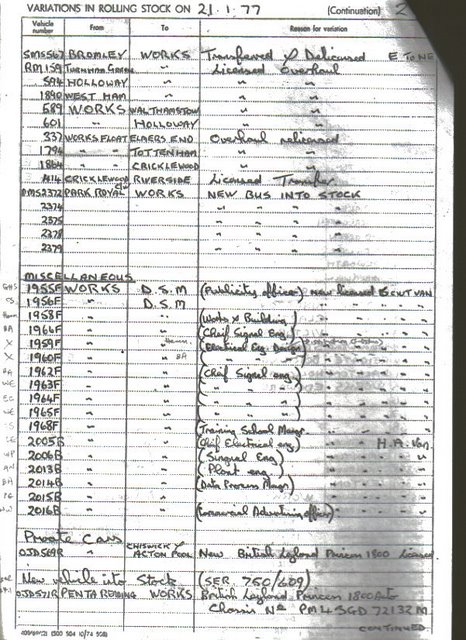 VARIATIONS IN ROLLING STOCK ON 21.1.77 (Continuation) 2
Vehicle number From To Reason for variation
SMS567 BROMLEY WORKS Transferred & Delicensed E TO NE
RM159 TURNHAM GREEN " Licensed Overhaul
594 HOLLOWAY " " "
1890 WEST HAM " " "
689 WORKS WALTHAMSTOW " "
601 " HOLLOWAY " "
337 WORKS FLOAT ELMERS END Overhaul relicensed
1794 " " TOTTENHAM " "
1864 " " CRICKLEWOOD " "
414 CRICKLEWOOD RIVERSIDE Licensed Transfer
DMS2372 PARK ROYAL WORKS NEW BUS INTO STOCK
2374 " " " " " "
2375 " " " " " "
2378 " " " " " "
2379 " " " " " "
MISCELLANEOUS
1955F WORKS D.S.M (Publicity officer) new licensed 6cwt VAN
1956F " D.S.M " " "
1958F " " (Works & Building) " " "
1964F " " (Cheif Signal Eng.) " " "
X 1959F " " (Electrical Eng. Design) " "
X 1960F " " BA ( " " ) " " "
1962F " " (Cheif Signal eng) " " "
1963F " " ( " ) " " "
1964F " " ( " ) " " "
1965F " " ( " ) " " "
1968F " " (Training School Mangr. " " "
2005B " " (Cheif Electrical eng) " H.A. Van
2006B " " (Singnal Eng) " " "
2013B " " (Plant eng) " " "
2014B " " (Data Process Mangr) " " "
2015B " " " " "
2016B " " (Commercial Advertising officer) " " "
Private Cars
OJD569R CHISWICK & ACTON POOL New British Leyland Princess 1800 Licensed
New vehicle into Stock (SER. 750/609)
OJD571R PENTA ROADING WORKS British Leyland Princess 1800 Auto
Chassis No PM4SGD 72132M
CONTINUED